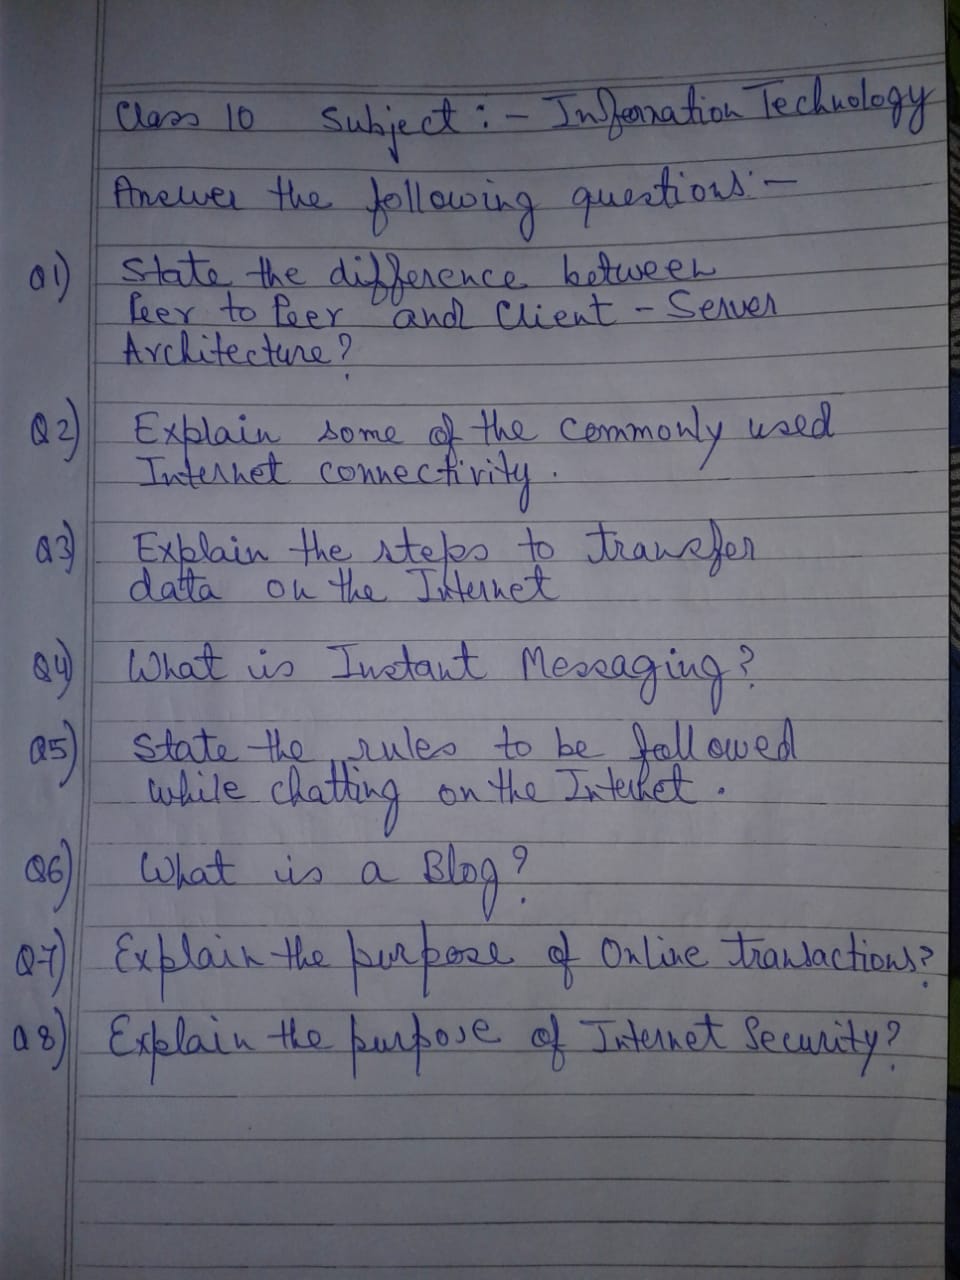 Class 10 Subject :- Information Technology
Answer the following questions:-
Q1) State the difference between
Peer to Peer and Client - Server
Architecture?
Q2) Explain some of the commonly used
Internet connectivity.
Q3) Explain the steps to transfer
data on the Internet
Q4) What is Instant Messaging?
Q5) State the rules to be followed
while chatting on the Internet.
Q6) What is a Blog?
Q7) Explain the purpose of Online transactions?
Q8) Explain the purpose of Internet Security?